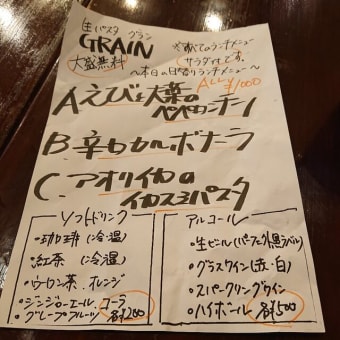 生パスタ グラン
GRAIN
大盛無料
※すべてのランチメニュー
サラダ付です。
〜本日の日替りランチメニュー〜
ALL ¥1000
A.えびと大葉の
ペペロンチーノ
B.辛口カルボナーラ
C.アオリイカの
イカスミパスタ
ソフトドリンク
・珈琲(冷・温)
・紅茶 (冷・温)
・ウーロン茶、オレンジ
・ジンジャーエール、コーラ
・グレープフルーツ 各¥200
アルコール
・生ビール(パーフェクト黒ラベル)
・グラスワイン(赤・白)
・スパークリングワイン
・ハイボール 各¥500